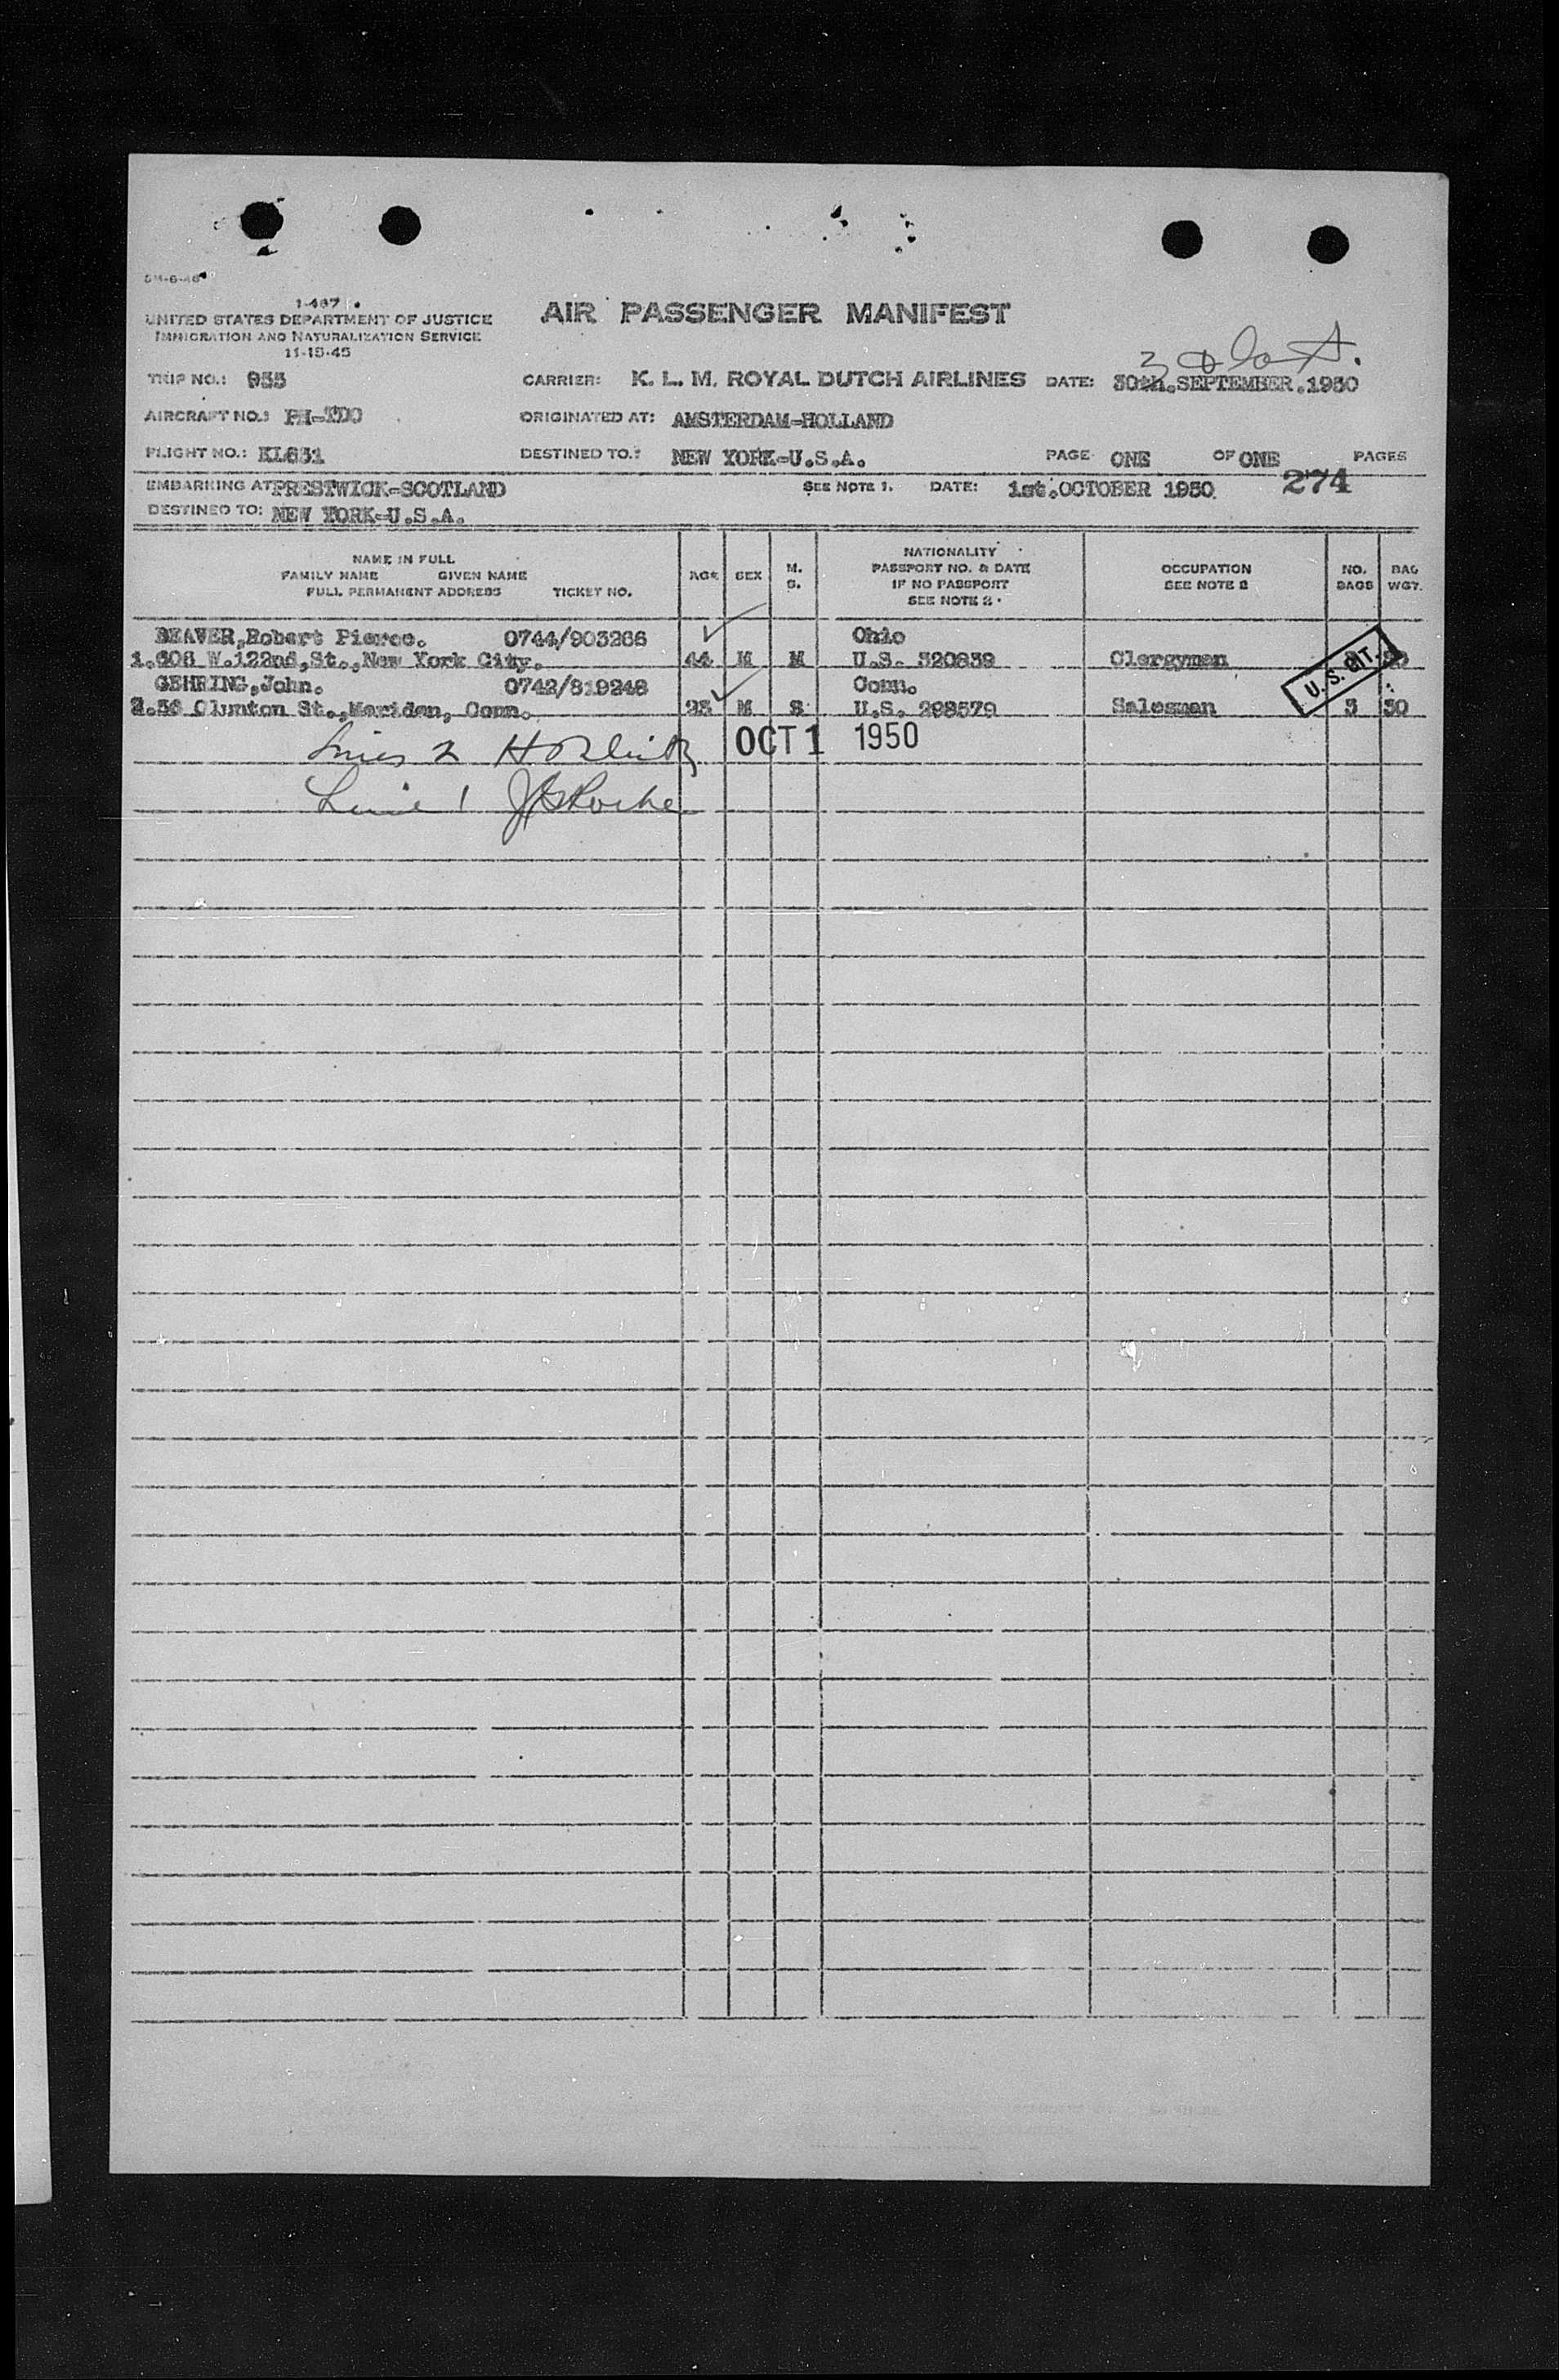 1-467
UNITED STATES DEPARTMENT OF JUSTICE
IMMIGRATION AND NATURALIZATION SERVICE
11-15-45
AIR PASSENGER MANIFEST
TRIP NO.: 955 CARRIER: K. L. M. ROYAL DUTCH AIRLINES DATE: 30th.SEPTEMBER.1950
AIRCRAFT NO.: PH-TDO ORIGINATED AT: AMSTERDAM-HOLLAND
FLIGHT NO.: KL631 DESTINED TO.: NEW YORK-U.S.A. PAGE ONE OF ONE PAGES
EMBARKING AT PRESTWICK-SCOTLAND SEE NOTE 1. DATE: 1st.OCTOBER 1950 274
DESTINED TO: NEW YORK-U.S.A.
NAME IN FULL
FAMILY NAME GIVEN NAME
FULL PERMANENT ADDRESS TICKET NO.
AGE SEX M. S.
NATIONALITY
PASSPORT NO. & DATE
IF NO PASSPORT
SEE NOTE 2.
OCCUPATION
SEE NOTE 2
NO. BAGS
BAG WGT.
BEAVER,Robert Pierce. 0744/903266 Ohio
1.606 W.122nd,St.,New York City. 44 M M U.S. 320839 Clergyman
U. S. CIT.
GEHRING,John. 0742/819248 Conn.
2.56 Clunton St.,Meriden, Conn. 25 M S U.S. 298579 Salesman 3 30
OCT 1 1950
Line 1